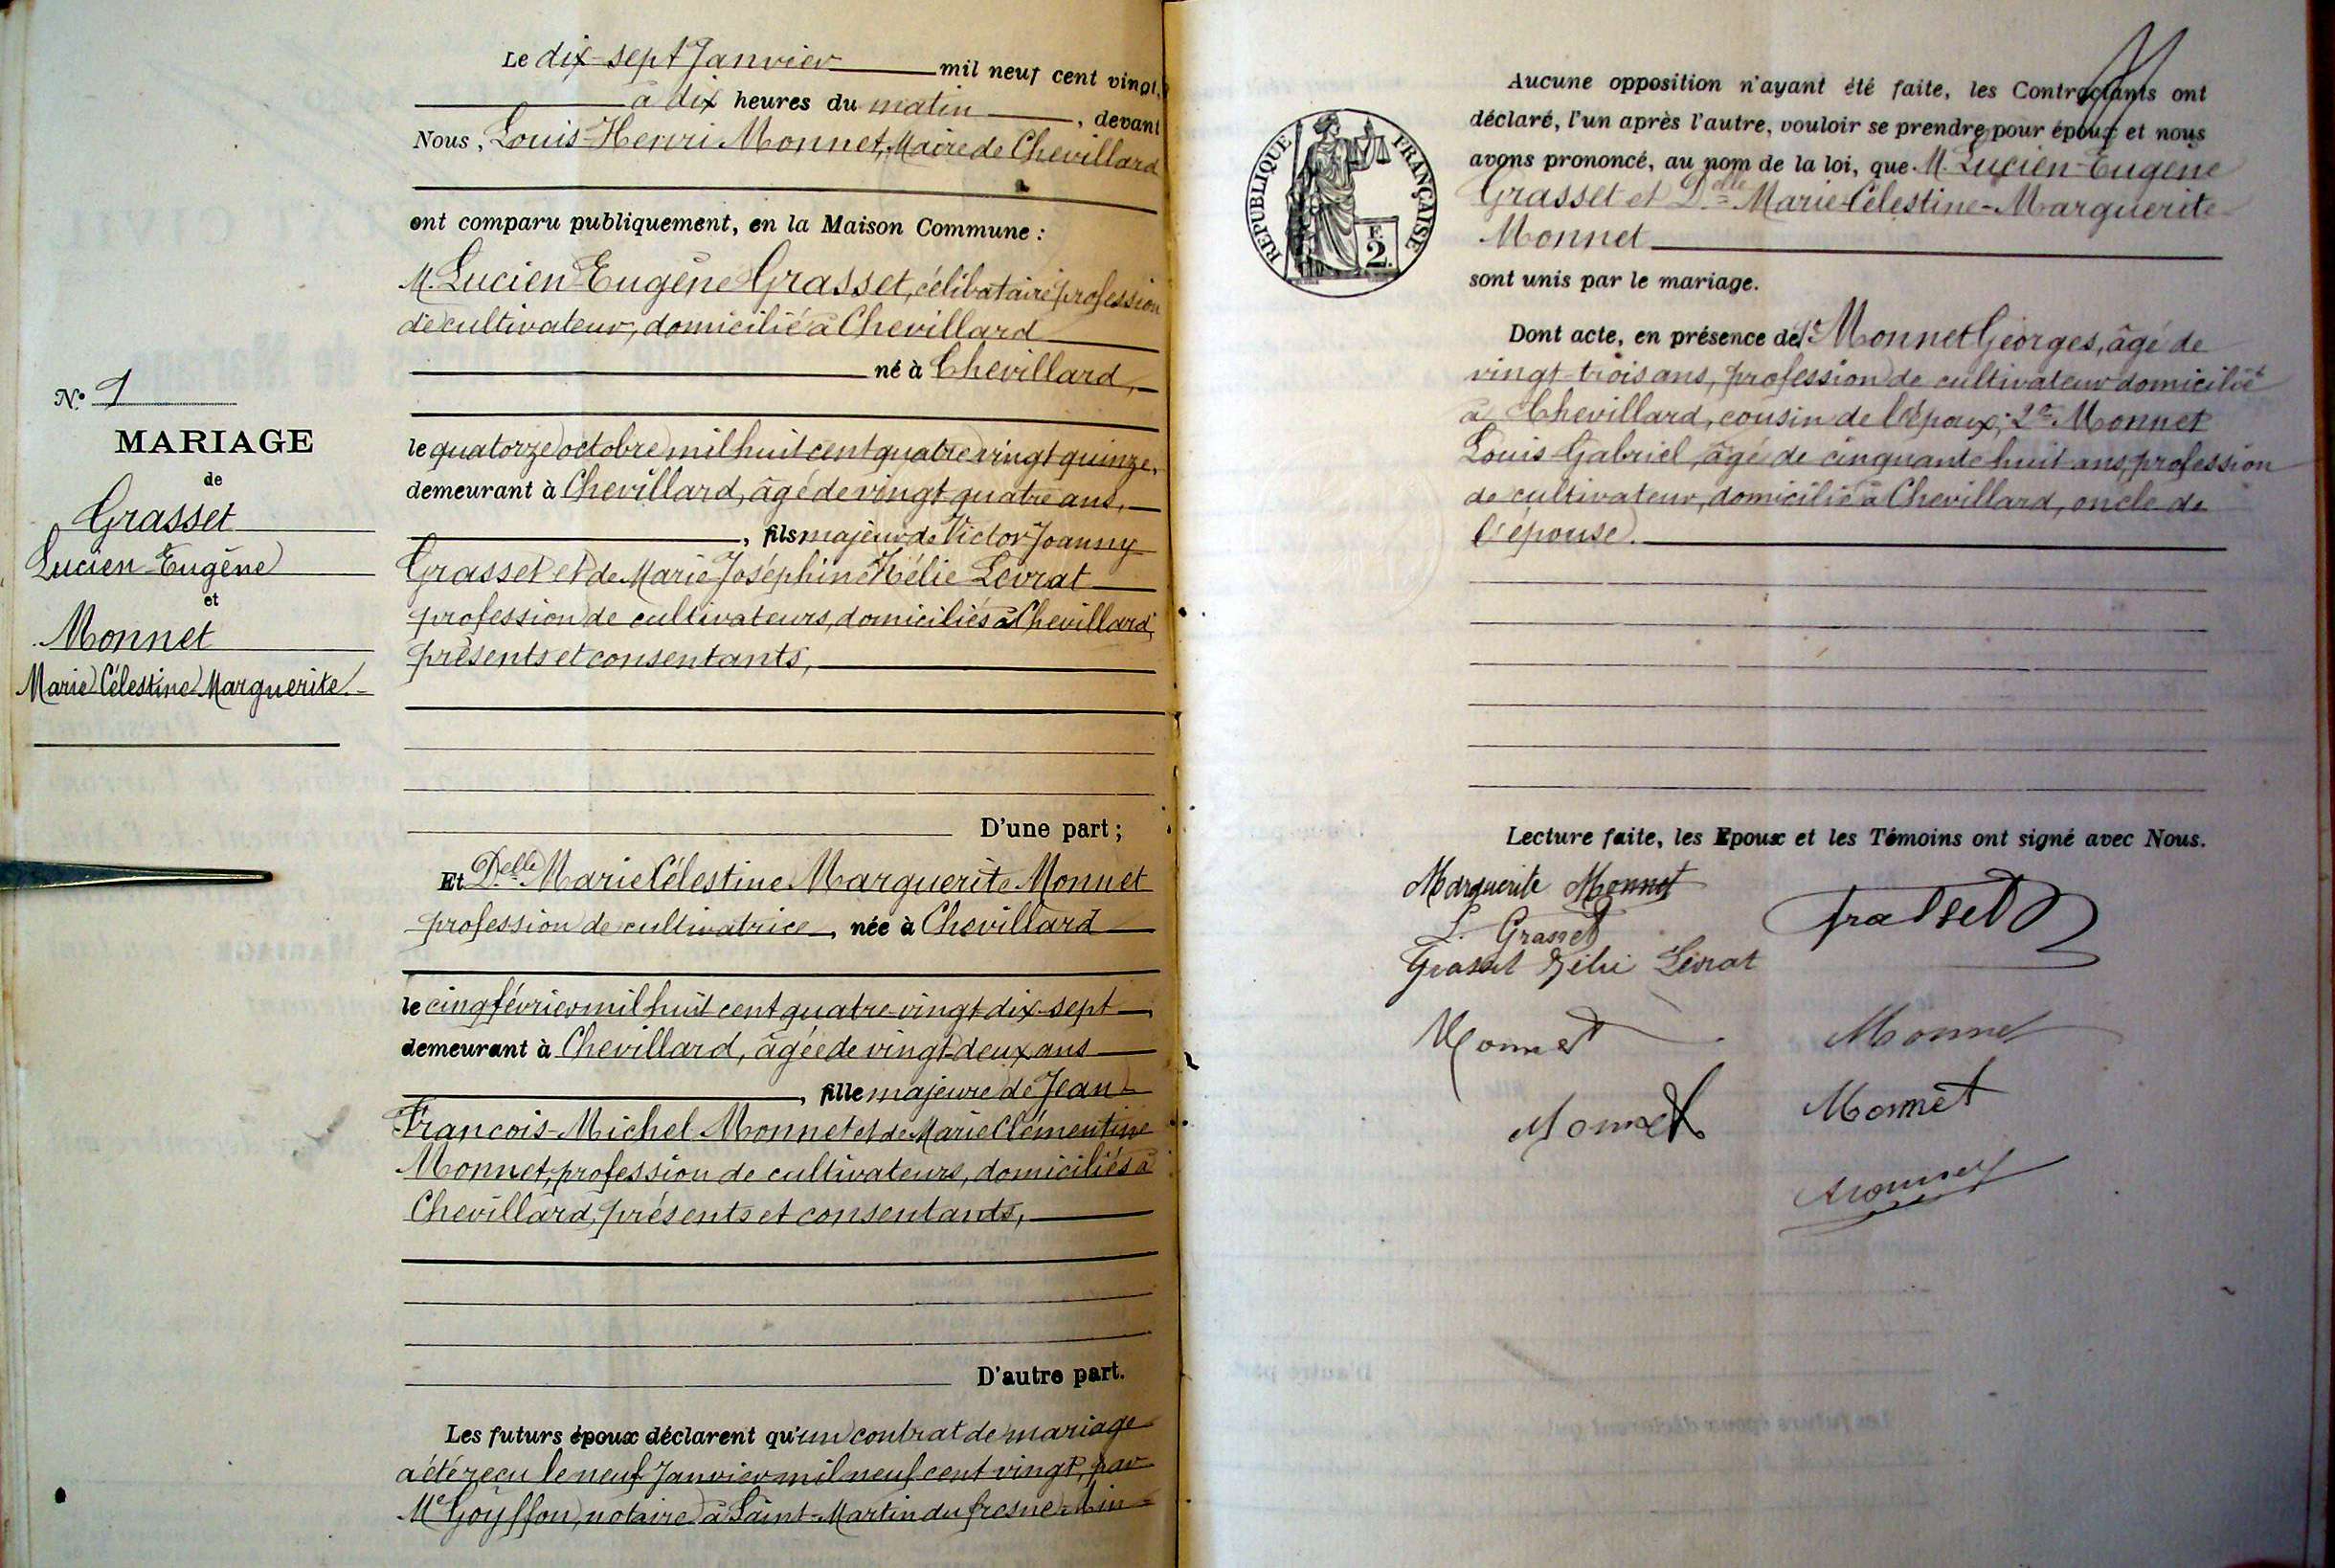 Le dix-sept Janvier mil neuf cent vingt,
à dix heures du matin, devant
Nous, Louis-Henri Monnet, Maire de Chevillard
ont comparu publiquement, en la Maison Commune :
M. Lucien-Eugène Grasset, célibataire, profession
de cultivateur, domicilié à Chevillard
né à Chevillard,
le quatorze octobre mil huit cent quatre vingt quinze,
demeurant à Chevillard, âgé de vingt quatre ans,
, fils majeur de Victor Joanny
Grasset et de Marie Joséphine Zélie Levrat
profession de cultivateurs, domiciliés à Chevillard,
présents et consentants,
D'une part ;
N° 1
MARIAGE
de
Grasset
Lucien-Eugène
et
Monnet
Marie Célestine Marguerite
Et Delle Marie Célestine Marguerite Monnet
profession de cultivatrice, née à Chevillard
le cinq février mil huit cent quatre-vingt dix-sept
demeurant à Chevillard, âgée de vingt-deux ans
, fille majeure de Jean-
François-Michel Monnet et de Marie Clémentine
Monnet, profession de cultivateurs, domiciliés à
Chevillard, présents et consentants,
D'autre part.
Les futurs époux déclarent qu'un contrat de mariage
a été reçu le neuf Janvier mil neuf cent vingt, par
Me Goyffon, notaire à Saint-Martin du fresne
RÉPUBLIQUE FRANÇAISE
F.
2.
Aucune opposition n'ayant été faite, les Contractants ont
déclaré, l'un après l'autre, vouloir se prendre pour époux et nous
avons prononcé, au nom de la loi, que M. Lucien-Eugène
Grasset et Delle Marie-Célestine-Marguerite
Monnet
sont unis par le mariage.
Dont acte, en présence de 1° Monnet Georges, âgé de
vingt-trois ans, profession de cultivateur domicilié
à Chevillard, cousin de l'époux; 2° Monnet
Louis Gabriel, âgé de cinquante huit ans, profession
de cultivateur, domicilié à Chevillard, oncle de
l'épouse.
Lecture faite, les Epoux et les Témoins ont signé avec Nous.
Marguerite Monnet
L. Grasset
Grasset
Grasset Zélie Levrat
Monnet
Monnet
Monnet
Monnet
Monnet